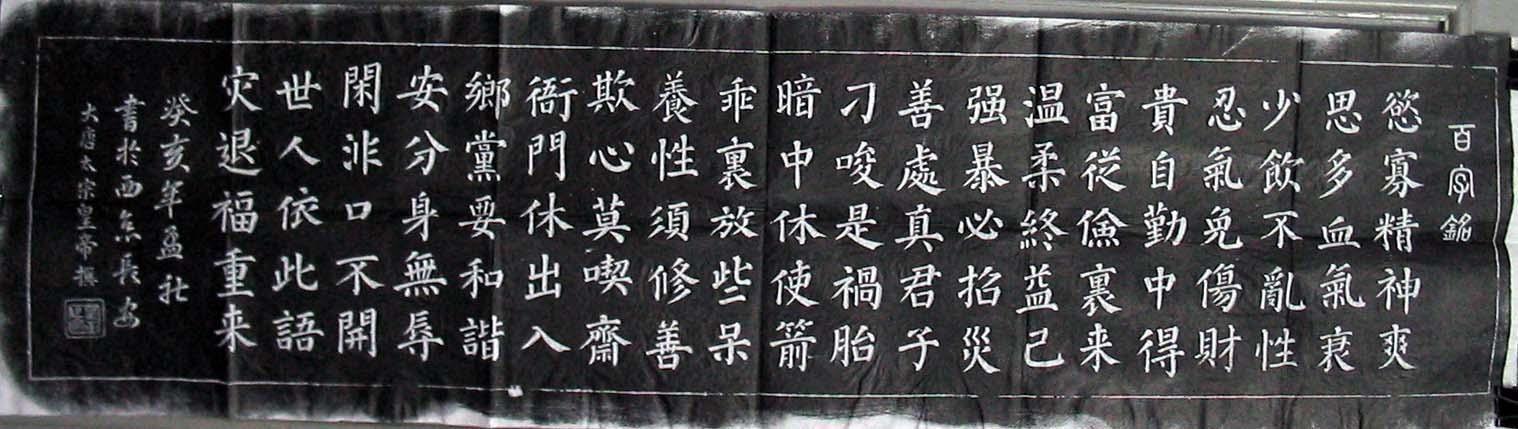 百字銘
慾寡精神爽
思多血氣衰
少飲不亂性
忍氣免傷財
貴自勤中得
富從儉裏来
温柔終益己
强暴必招災
善處真君子
刁唆是禍胎
暗中休使箭
乖裏放些呆
養性須修善
欺心莫喫齋
衙門休出入
鄉黨要和諧
安分身無辱
閑非口不開
世人依此語
灾退福重来
癸亥年孟
書於西京長安
大唐太宗皇帝撰